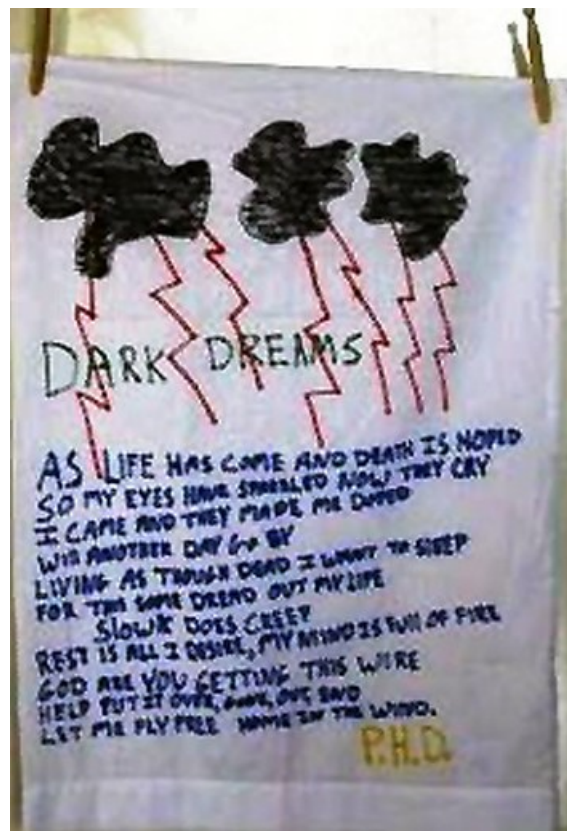 DARK DREAMS
AS LIFE HAS COME AND DEATH IS HOPED
SO MY EYES HAVE SPARKLED NOW THEY CRY
I CAME AND THEY MADE ME DOPED
ANOTHER DAY GO BY
LIVING AS THOUGH DEAD I WANT TO SLEEP
FOR THE SAME DREAD OUT MY LIFE
DOES CREEP
REST IS ALL I DESIRE, MY MIND IS FULL OF FIRE
GOD ARE YOU GETTING THIS WIRE
HELP PUT IT OVER, OUT, END
LET ME FLY FREE HOME IN THE WIND.
P.H.D.